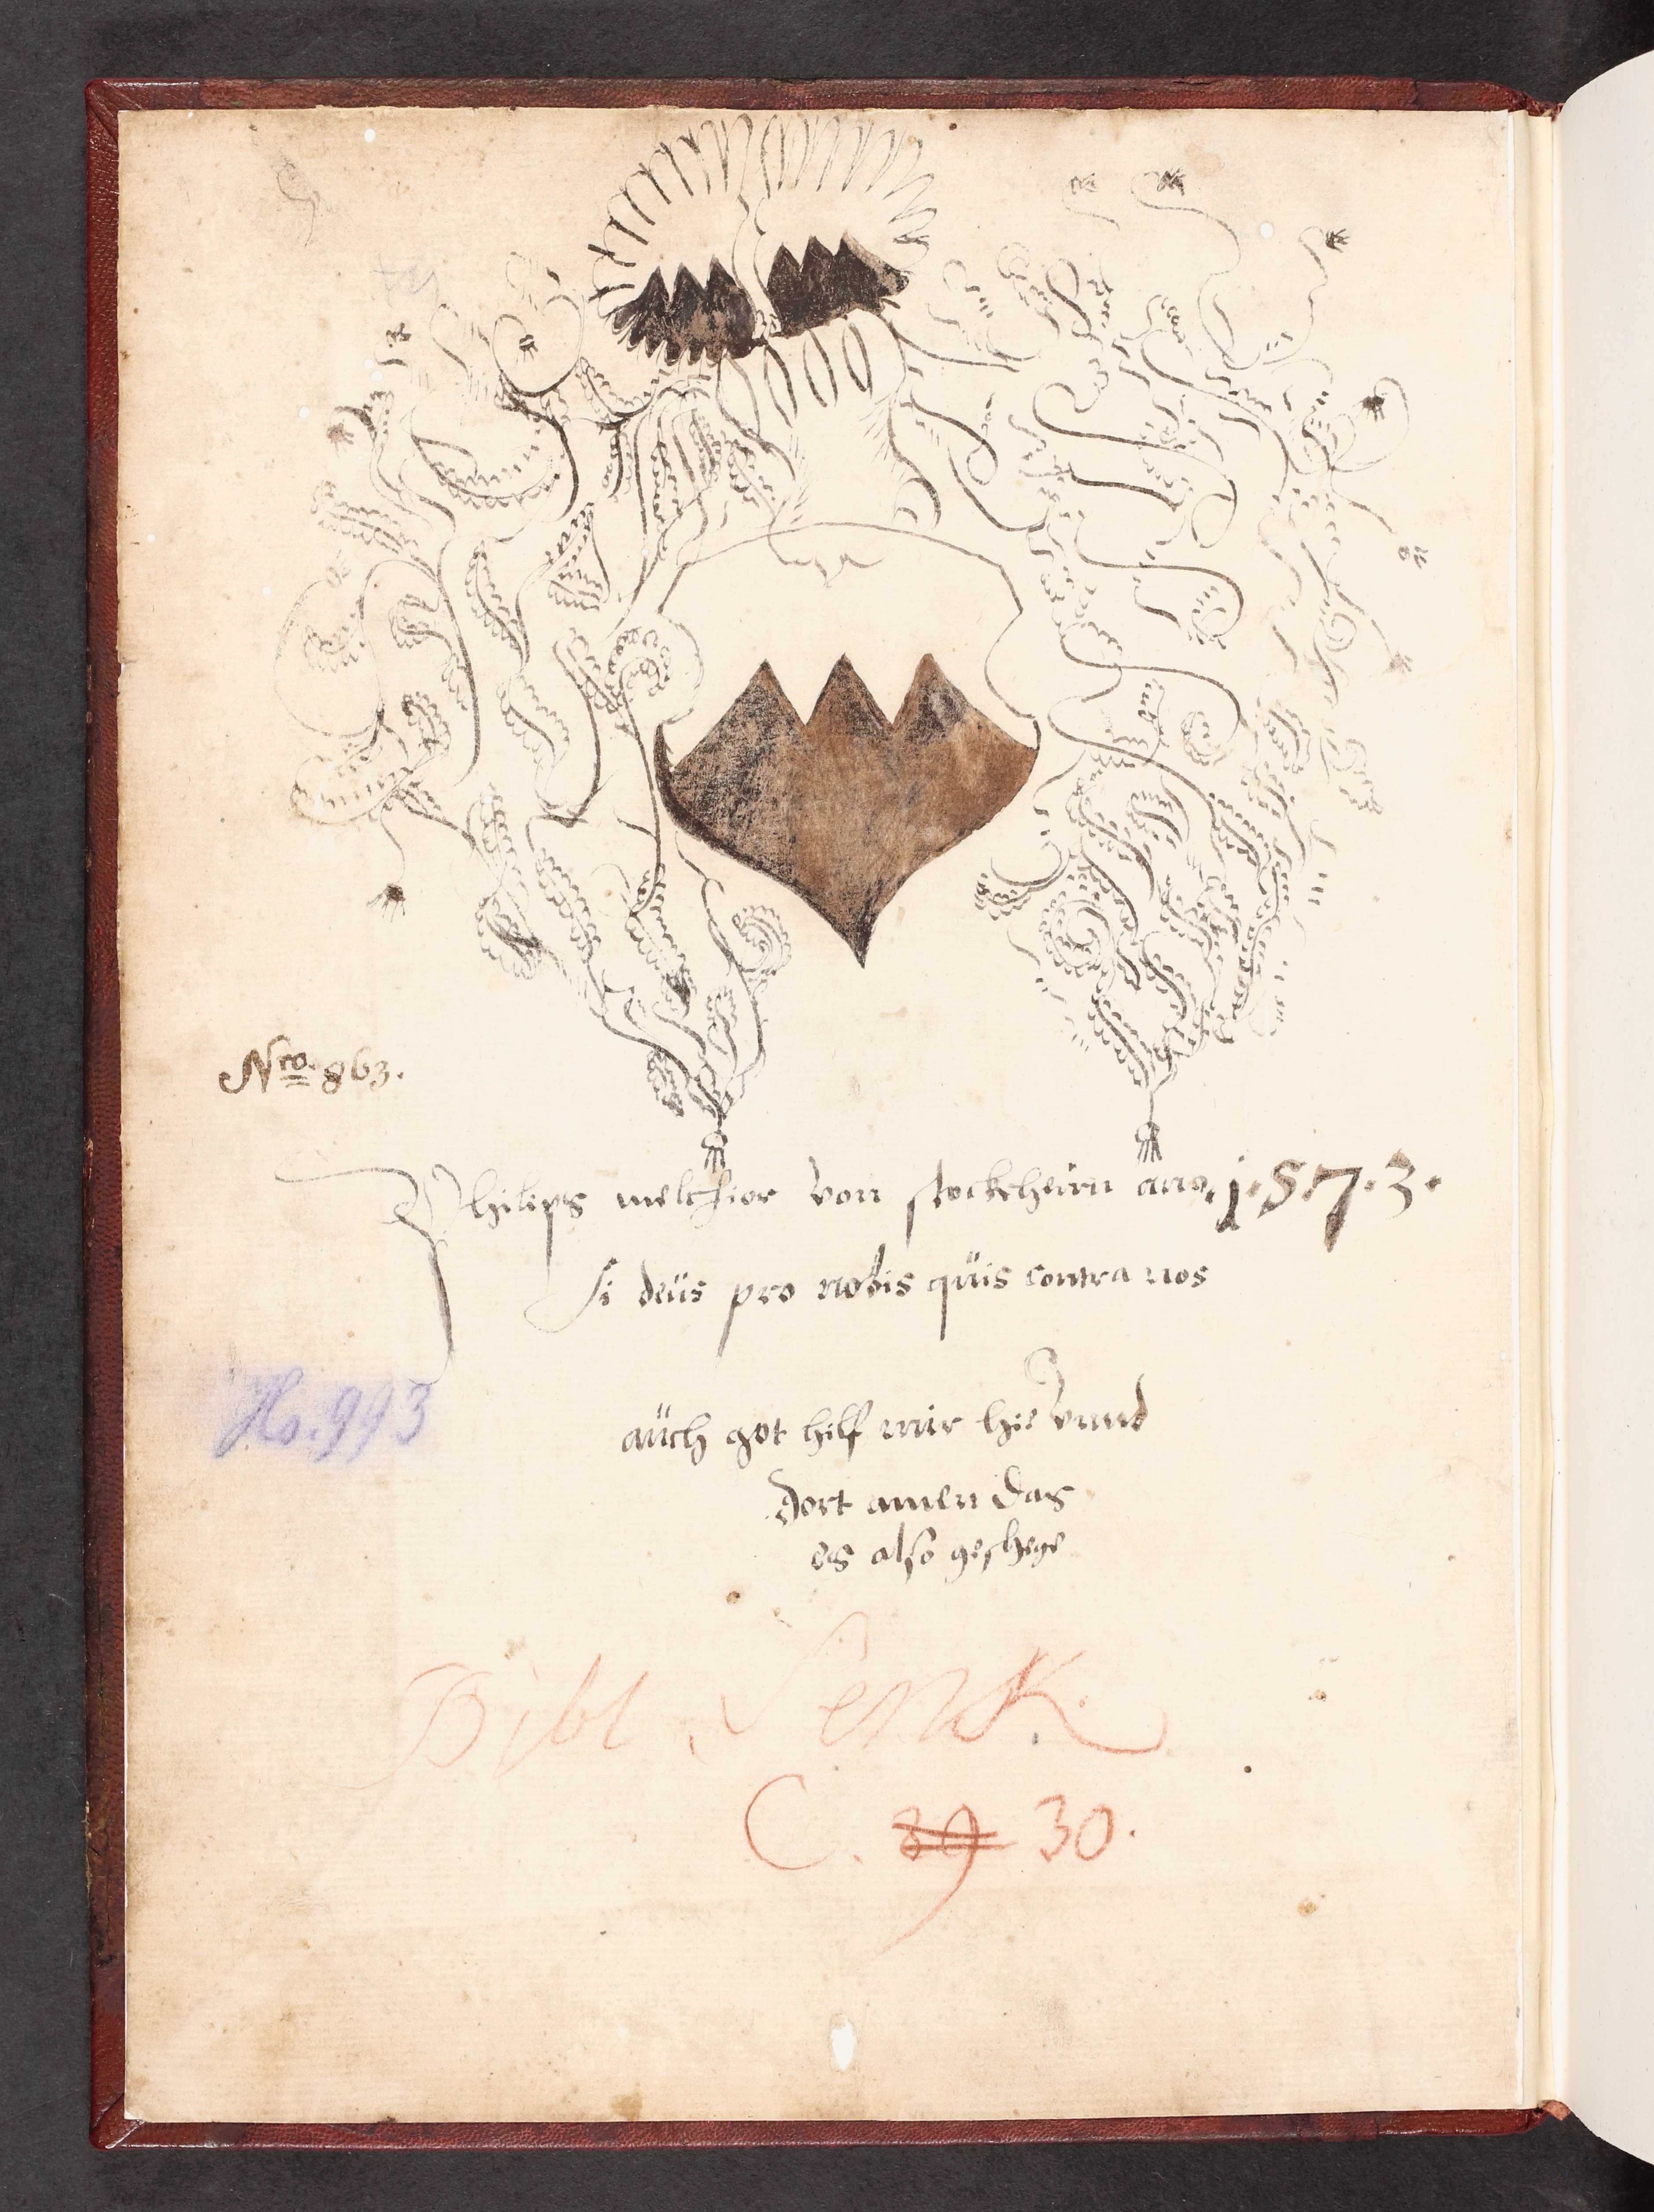 Nro. 863.
Philips melchior von stockheim ano. 1.5.7.3.
si deüs pro nobis qüis contra nos
Hs. 993
aüch got hilf mir hie vnnd
dort amen das
es also geshege
Bibl. Senk.
C. 89 30.